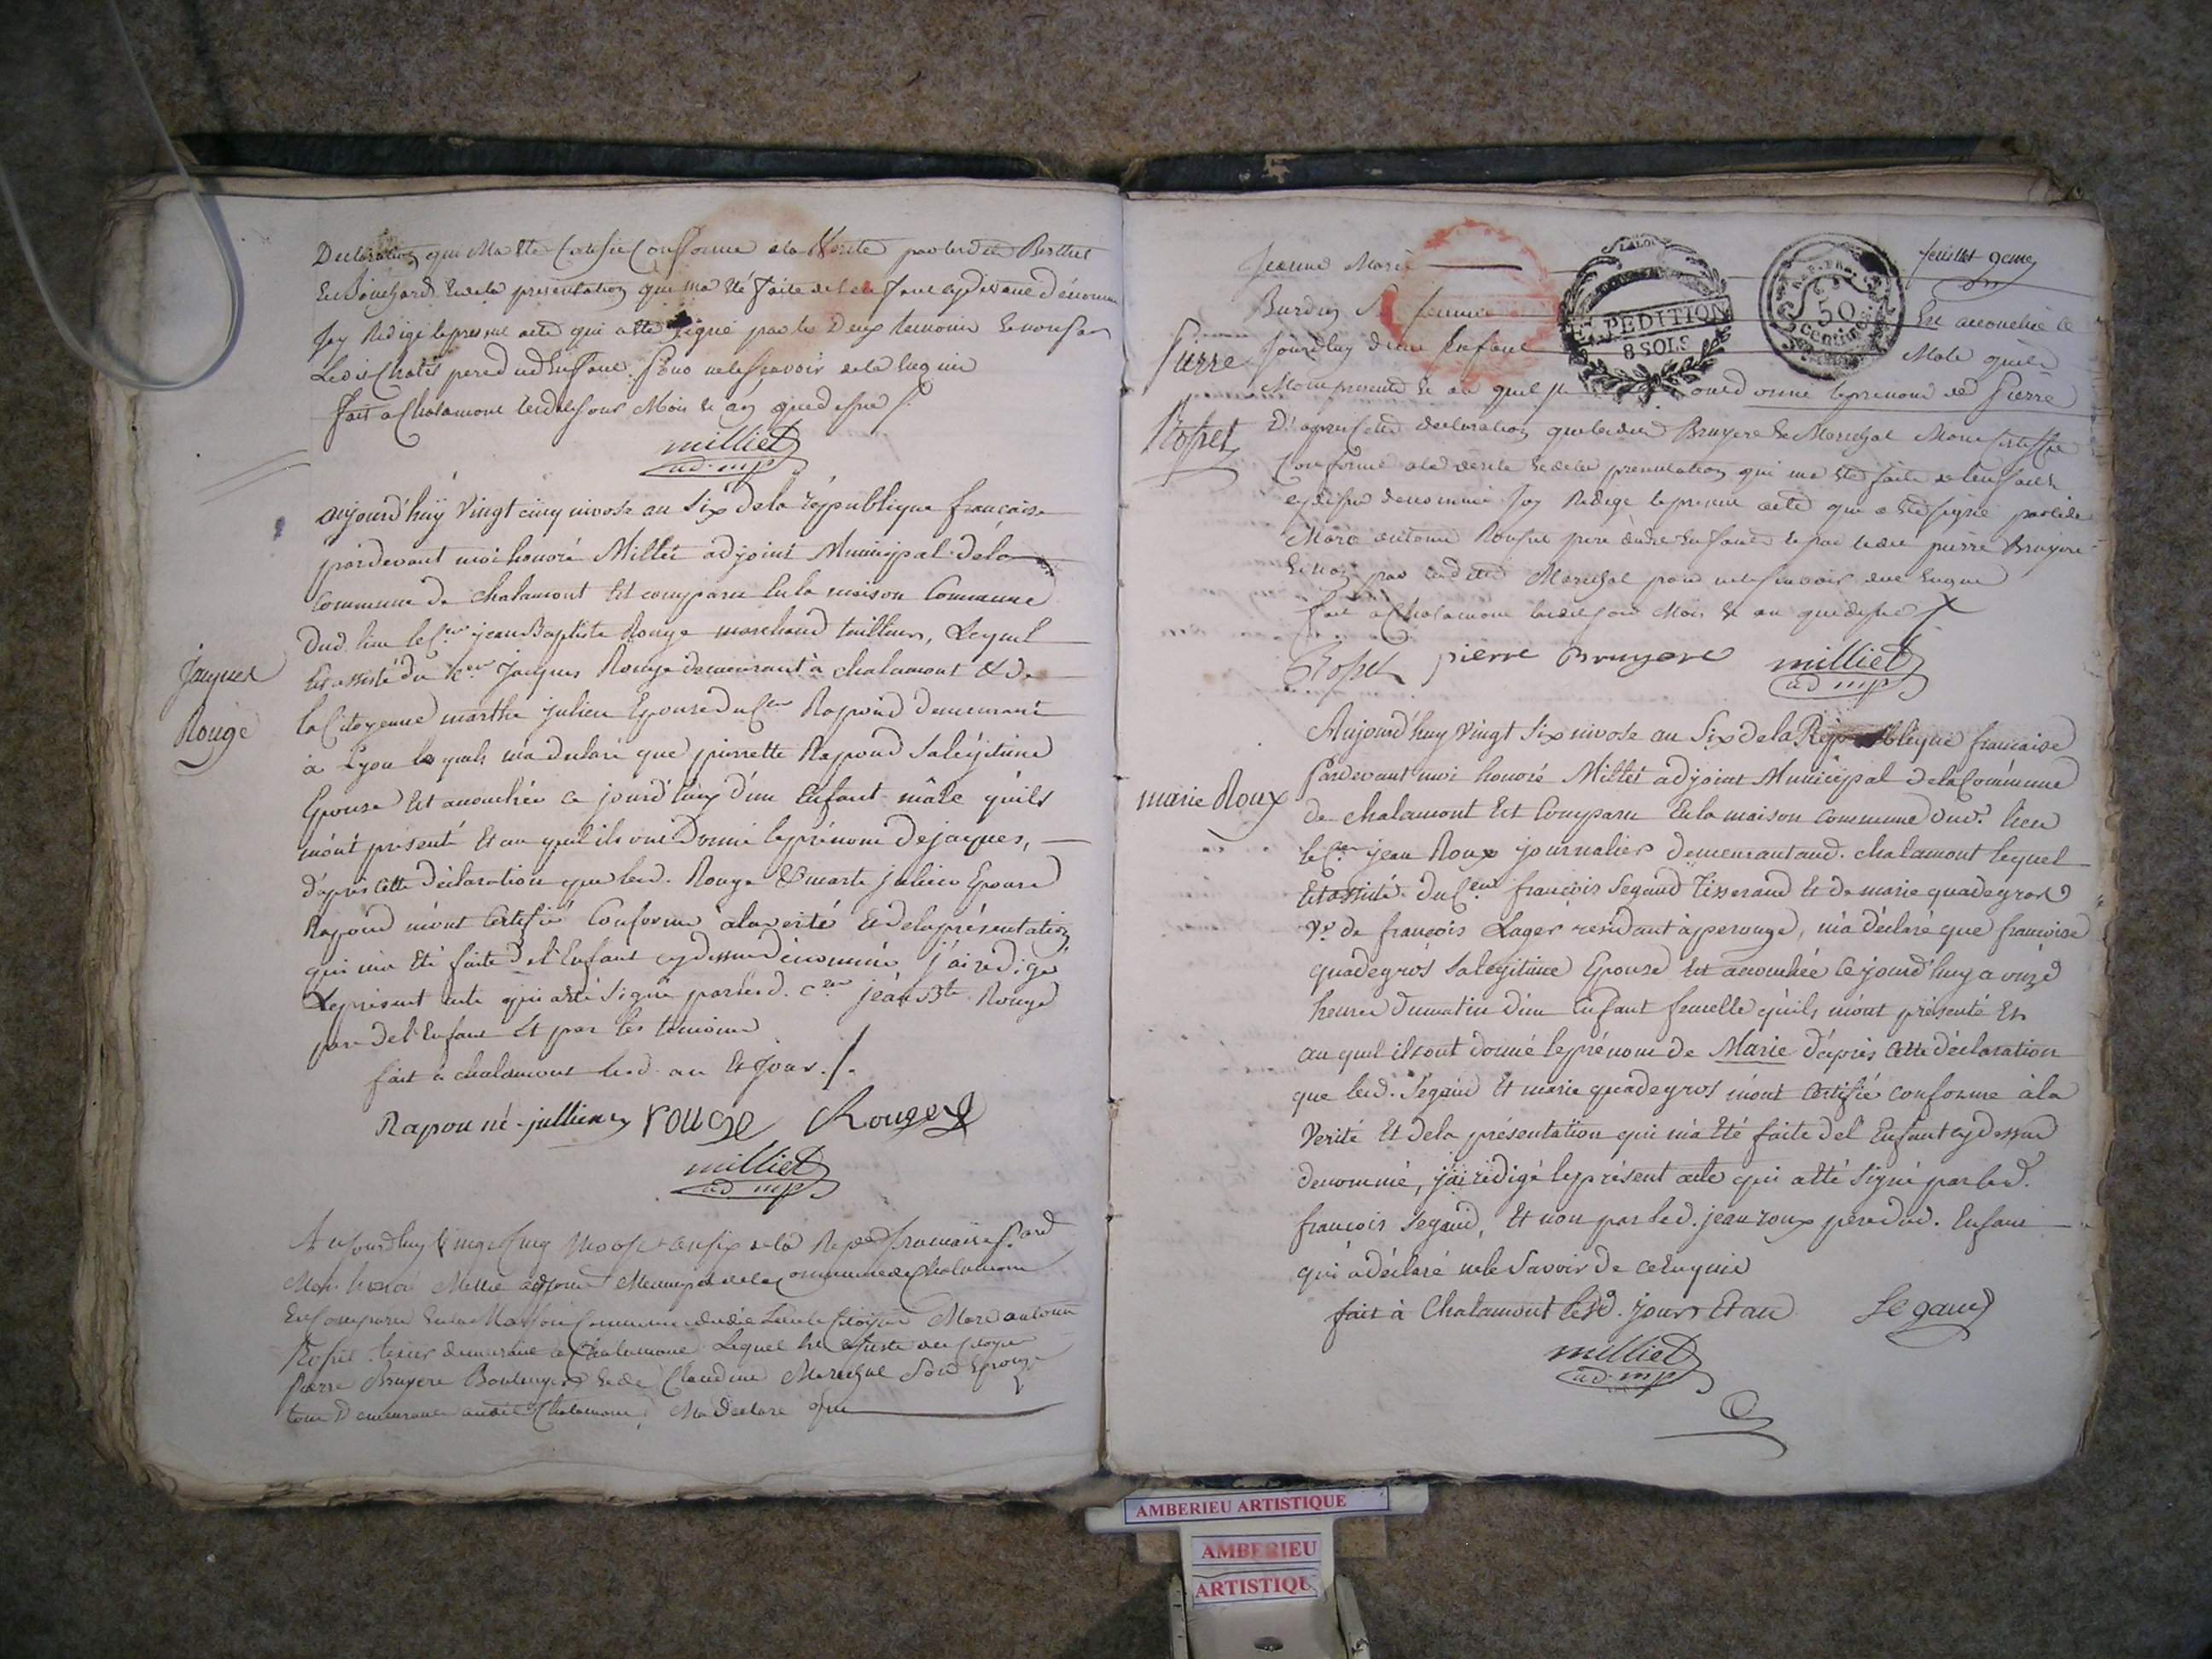 Declaration que Ma été Certifié Conforme a la Vérité par lesdits Berthet
et Bouchard et de la presentation qui ma été faite de l'enfant cydevant dénommé
Jay Rédigé le present acte qui a été signé par les Deux temoins et non par
Ledit Chatel pere dud Enfant pour ne le scavoir de la Requis
fait a Chalamont lesdits jour Mois et an que dessus
milliet
ad. mp
aujourd'huÿ Vingt cinq nivose an Six de la république française
pardevant moi honoré Milliet adjoint Municipal de la
Commune de chalamont Est comparu En la maison Commune
dud. lieu le C.en jean Baptiste Rouge marchand tailleur, Lequel
Est assisté du C.en Jacques Rouge demeurant à chalamont & de
la Citoyenne marthe julien Epouse du C.en Rapoud demeurant
à Lyon lesquels m'a déclaré que pierrette Rapoud sa légitime
Epouse Est accouchée ce jourd'huy d'un Enfant mâle qu'ils
m'ont présenté Et au quel ils ont Donné le prénom de jacques,
d'après cette déclaration que led. Rouge & marte julien Epouse
Rapoud m'ont Certifié Conforme à la vérité Et de la présentation
qui m'a Eté faite de l'Enfant cydessus dénommé j'ai rédigé
Le présent acte qui a été signé par led. C.en jean Bte Rouge
pere de l'Enfant Et par les temoins
fait à chalamont led. an Et jour ./.
jacques
Rouge
Rapou né jullien rouge Rouge
milliet
ad mp
Aujourdhuy Vingt Cinq Nivose an six de la Rep. francaise Pard
Moy honoré Milliet adjoint Municipal de la Commune de Chalamont
Est Comparu En la Maison Commune dudit Lieu le Citoyen Marc antoine
Rosset demeurant a Chalamont Lequel Est assisté du Citoyen
Pierre Bruyere Boulenger et de Claudine Marechal
tous Demeurant audit Chalamont, Ma Declaré que
feuillet 9eme
Jeanne Marie
Burdin Sa femme Est accouchée ce
Jourdhuy d'un Enfant Male quils
EXPEDITION
8 SOLS
REP. FRA.
50
centimes
Pierre
Rosset
Mont presenté et au quel ils ont donné le prenom de Pierre
D'apres Cette declaration que lesdits Bruyere et Marechal Mont Certifié
Conforme a la vérité et de la presentation qui ma été faite de lenfant
cydessus denommé Jay Redigé le present acte qui a été signé par ledit
Marc antoine Rosset pere dudit Enfant et par ledit pierre Bruyere
Et non par ladite Marechal pour ne le scavoir de ce Enquis
fait a Chalamont lesdits jour Mois et an que dessus
Rosset pierre Bruyere milliet
ad mp
Aujourd'huy Vingt Six nivose an Six de la République francaise
Pardevant moi honoré Milliet adjoint Municipal de la Commune
marie Roux
de chalamont Est Comparu En la maison Commune dud. lieu
le C.en jean Roux journalier demeurant aud. chalamont lequel
Est assisté du C.en françois Segaud Tisserand Et de marie quadegros
Ve. de françois Lager résidant à perouge, m'a déclaré que francoise
quadegros sa légitime Epouse Est accouchée Ce jourd'huy a onze
heures du matin d'un Enfant femelle qu'ils m'ont présenté Et
au quel ils ont donné le prénom de Marie d'après Cette déclaration
que led. Segaud Et marie quadegros m'ont Certifié conforme à la
Verité Et de la présentation qui m'a Eté faite de l'Enfant cy dessus
denommé, j'ai rédigé le présent acte qui a été signé par led.
françois Segaud, Et non par led. jean roux pere dud. Enfant
qui a déclaré ne le Savoir de ce Enquis
fait à Chalamont lesd. jour Et an Segaud
milliet
ad. mp
AMBERIEU ARTISTIQUE
AMBERIEU
ARTISTIQU